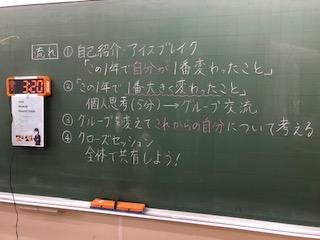 流れ ① 自己紹介 アイスブレイク
「この1年で自分が1番変わったこと」
②「この1年で1番大きく変わったこと」
個人思考(5分)→グループ交流
③ グループを変えてこれからの自分について考える
④ クローズセッション
全体で共有しよう!
3:20